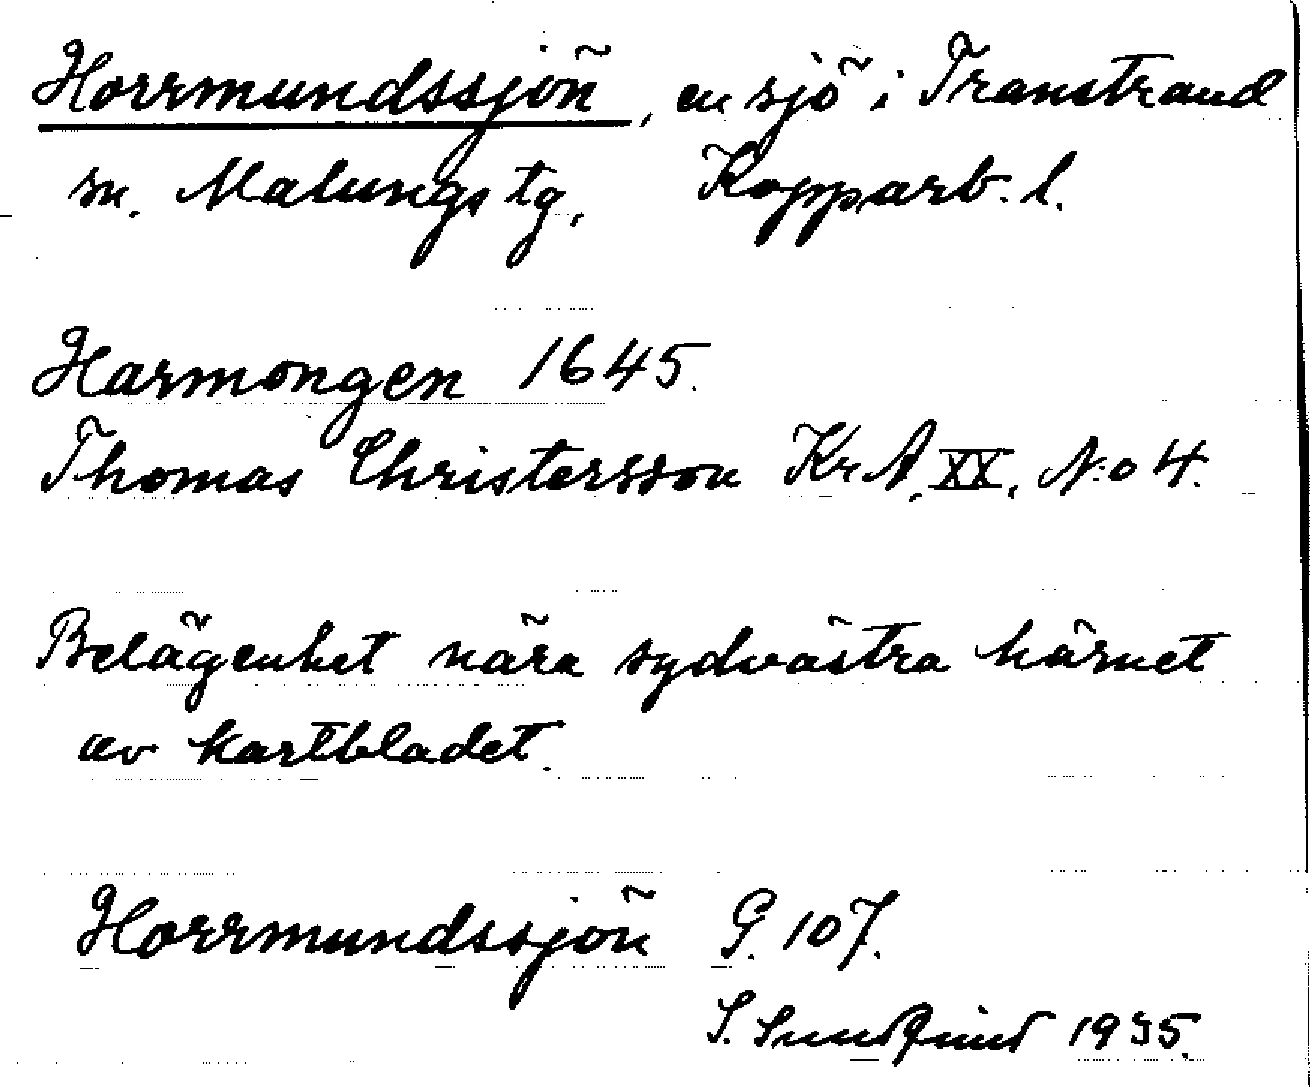 Horrmundssjön, en sjö i Transtrand
sn. Malungs tg, Kopparb. l.
Harmongen 1645.
Thomas Christersson KrA, XX, N:o 4.
Belägenhet nära sydvästra hörnet
av kartbladet.
Horrmundssjön G. 107.
S. Sundquist 1935.